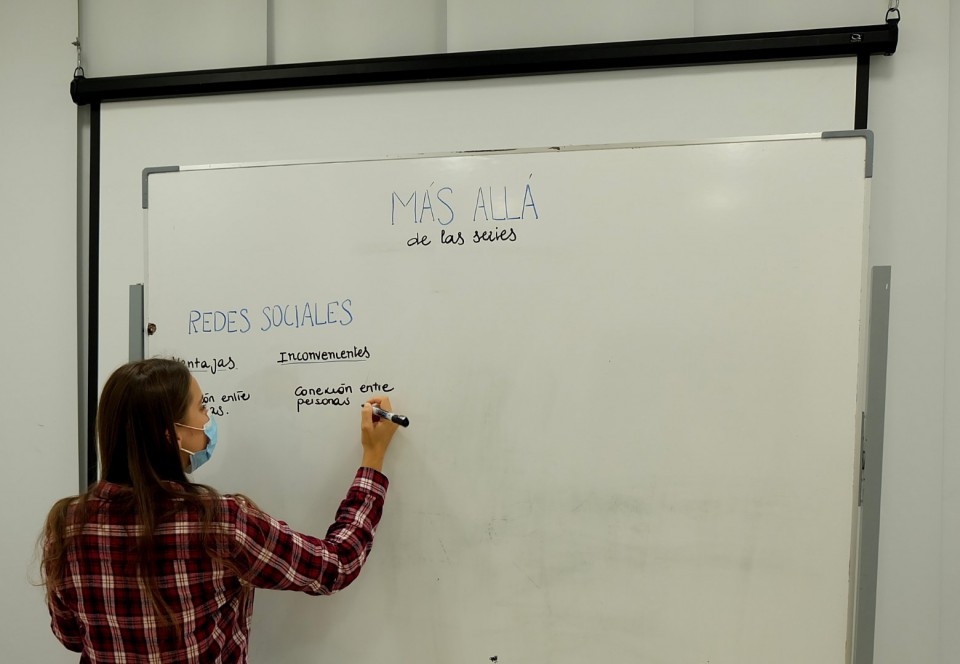 MÁS ALLÁ
de las series
REDES SOCIALES
Ventajas
Inconvenientes
entre
Conexión entre
personas